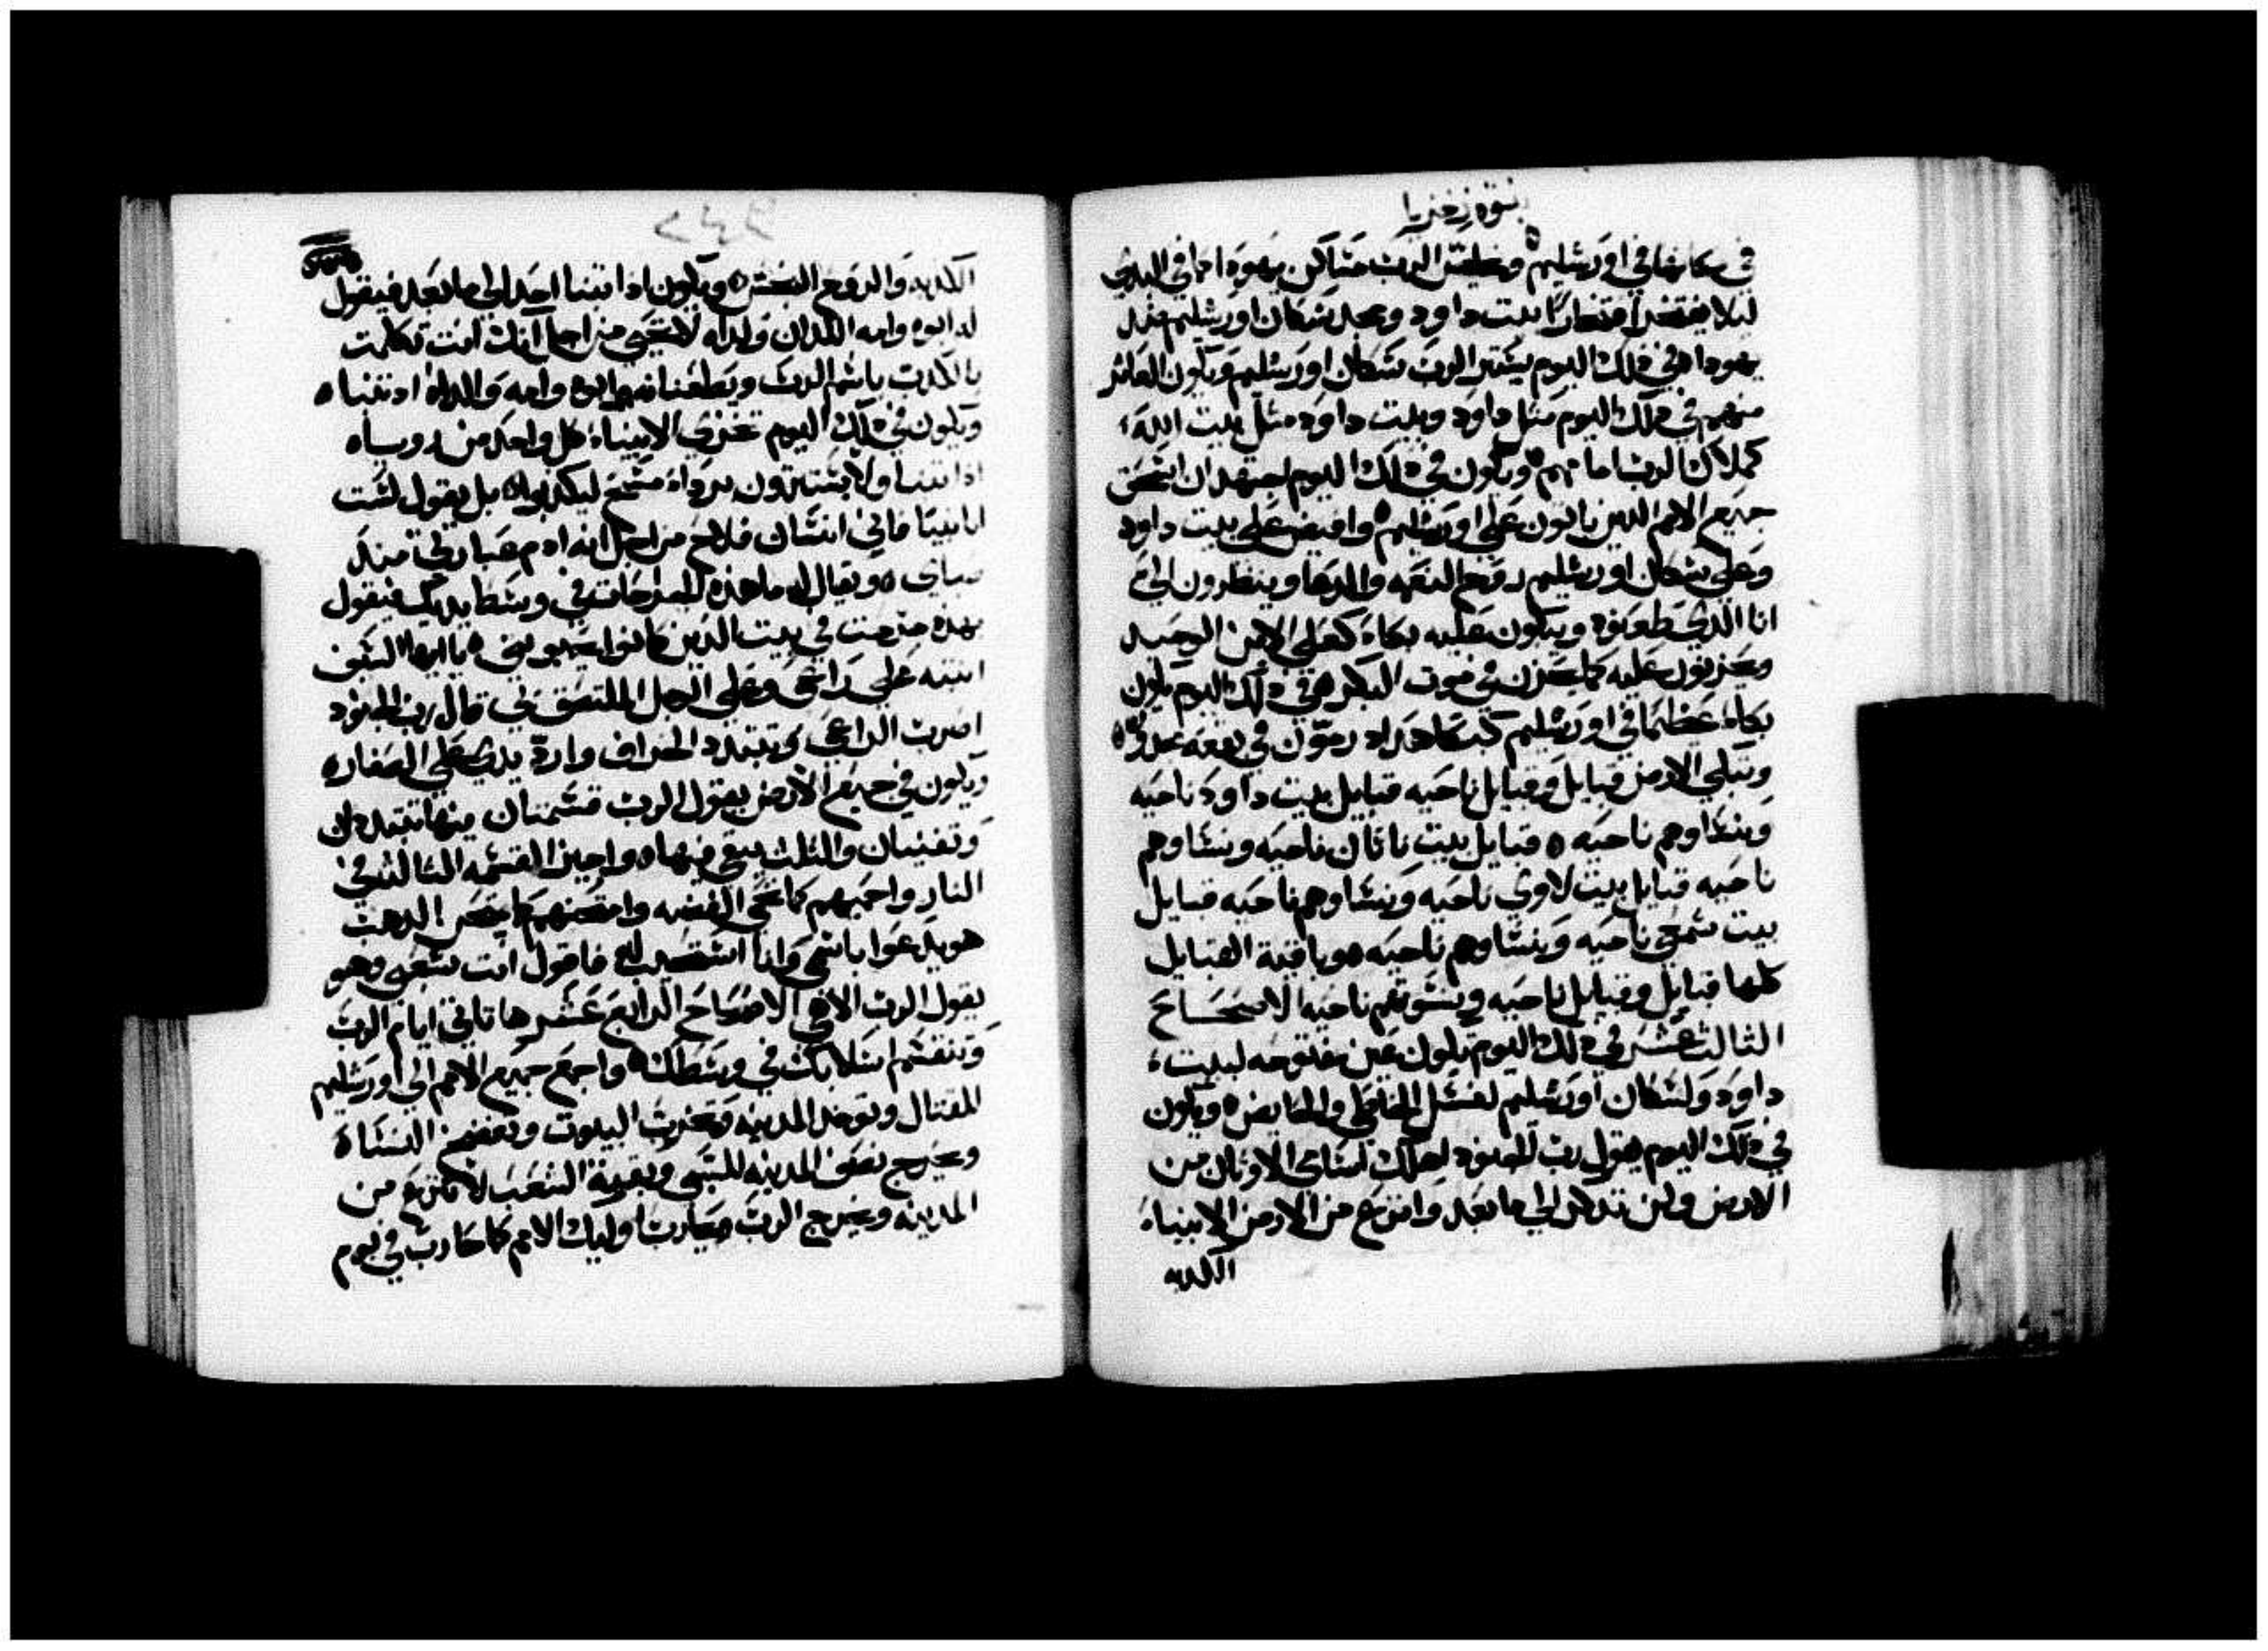 نبوة زخريا
في مكانها في اورشليم ويخلص الرب مساكن يهودا كما في البدي
ليلا يفتخر افتخارًا بيت داود ومجد سكان اورشليم ضد
يهودا في ذلك اليوم يستر الرب سكان اورشليم ويكون العاثر
منهم في ذلك اليوم مثل داود وبيت داود مثل بيت الله
كملاك الرب امامهم ويكون في ذلك اليوم اجتهد ان اسحق
جميع الامم الذين ياتون على اورشليم وافيض على بيت داود
وعلى سكان اورشليم روح النعمه والدعا وينظرون الي
انا الذي طعنوه ويبكون عليه بكاءً كعلى الابن الوحيد
ويحزنون عليه كما يحزن في موت البكر في ذلك اليوم يكون
بكاء عظيما في اورشليم كبكا هدادرمون في بقعه مجدو
وتبكي الارض قبايل وقبايل ناحيه قبايل بيت داود ناحيه
ونساوهم ناحيه قبايل بيت ناتان ناحيه ونساوهم
ناحيه قبايل بيت لاوي ناحيه ونساوهم ناحيه قبايل
بيت شمعي ناحيه ونساوهم ناحيه وباقية القبايل
كلها قبايل وقبايل ناحيه ونسوتهم ناحيه الاصحاح
الثالث عشر في ذلك اليوم تكون عين مفتوحه لبيت
داود ولسكان اورشليم لغسل الخاطي والحايض ويكون
في ذلك اليوم يقول رب الجنود اهلك اسامي الاوثان من
الارض ولن تذكر الي ما بعد وانتزع من الارض الانبياء
الكذبه
الكذبه والروح النجس ويكون اذا تنبا احد الي ما بعد فيقول
له ابوه وامه اللذان ولداه لا تحيي من اجل انك انت تكلمت
بالكذب باسم الرب ويطعنانه ابوه وامه والداه اذ تنبا
ويكون في ذلك اليوم تخزي الانبياء كل واحد من روياه
اذا تنبا ولا يستترون برداء مسح ليكذبوا بل يقول لست
انا نبيًا فاني انسان فلاح من اجل ان ادم عبارتي منذ
صباي ويقال له ما هذه الجراحات في وسط يديك فيقول
بهذه جرحت في بيت الذين كانوا يحبونني يا ايها السيف
انتبه على راعي وعلى الرجل الملتصق بي قال رب الجنود
اضرب الراعي وتتبدد الخراف وارد يدي على الصغار
ويكون في جميع الارض يقول الرب قسمتان منها تتبددان
وتفنيان والثلث يبقى فيها واجيز القسمه الثالثه في
النار واحميهم كما تحمى الفضه وامتحنهم كما يمتحن الذهب
هو يدعوا باسمي وانا استجيب له فاقول انت شعبي وهو
يقول الرب الاهي الاصحاح الرابع عشر ها تاتي ايام الرب
وتنقسم اسلابك في وسطك واجمع جميع الامم الي اورشليم
للقتال وتوخذ المدينه وتخرب البيوت وتفضح النساء
ويخرج نصف المدينه للسبي وبقية الشعب لا تنتزع من
المدينه ويخرج الرب ويحارب اوليك الامم كما حارب في يوم